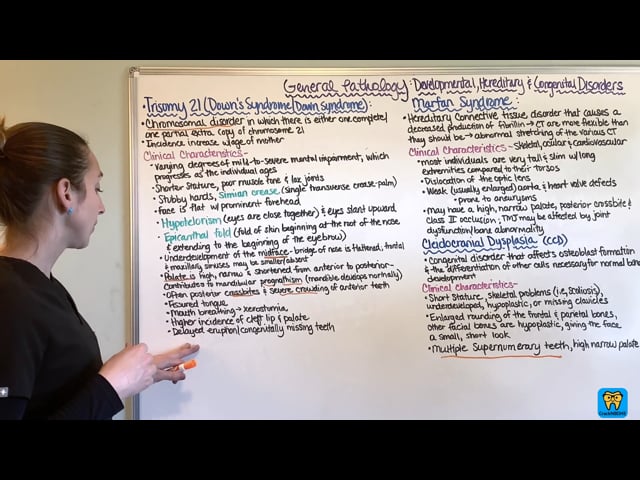 General Pathology: Developmental, Hereditary & Congenital Disorders
Trisomy 21 (Down's Syndrome/Down syndrome):
• Chromosomal disorder in which there is either one complete/
one partial extra copy of chromosome 21
• Incidence increase w/age of mother
Clinical Characteristics-
• Varying degrees of mild-to-severe mental impairment, which
progresses as the individual ages
• Shorter Stature, poor muscle tone & lax joints
• Stubby hands, Simian crease (single transverse crease-palm)
• Face is flat w/ prominent forehead
• Hypotelorism (eyes are close together) & eyes slant upward
• Epicanthal fold (fold of skin beginning at the root of the nose
& extending to the beginning of the eyebrow)
• Underdevelopment of the midface - bridge of nose is flattened, frontal
& maxillary sinuses may be smaller/absent
• Palate is high, narrow & shortened from anterior to posterior-
contributes to mandibular prognathism (mandible develops normally)
• Often posterior crossbites & severe crowding of anterior teeth
• Fissured tongue
• Mouth breathing → xerostomia,
• Higher incidence of cleft lip & palate
• Delayed eruption/congenitally missing teeth
Marfan Syndrome:
• Hereditary Connective tissue disorder that causes a
decreased production of fibrillin → CT are more flexible than
they should be → abnormal stretching of the various CT
Clinical Characteristics - Skeletal, ocular & cardiovascular
• most individuals are very tall & slim w/long
extremities compared to their torsos
• Dislocation of the optic lens
• Weak (usually enlarged) aorta & heart valve defects
- prone to aneurysms
• May have a high, narrow palate, posterior crossbite &
Class II occlusion; TMJ may be affected by joint
dysfunction/bone abnormality
Cleidocranial Dysplasia (CCD)
• Congenital disorder that affects osteoblast formation
& the differentiation of other cells necessary for normal bone
development
Clinical Characteristics-
• Short Stature, Skeletal problems (i.e., Scoliosis),
underdeveloped, hypoplastic, or missing clavicles
• Enlarged rounding of the frontal & parietal bones,
other facial bones are hypoplastic, giving the face
a small, short look
• Multiple Supernumerary teeth, high narrow palate